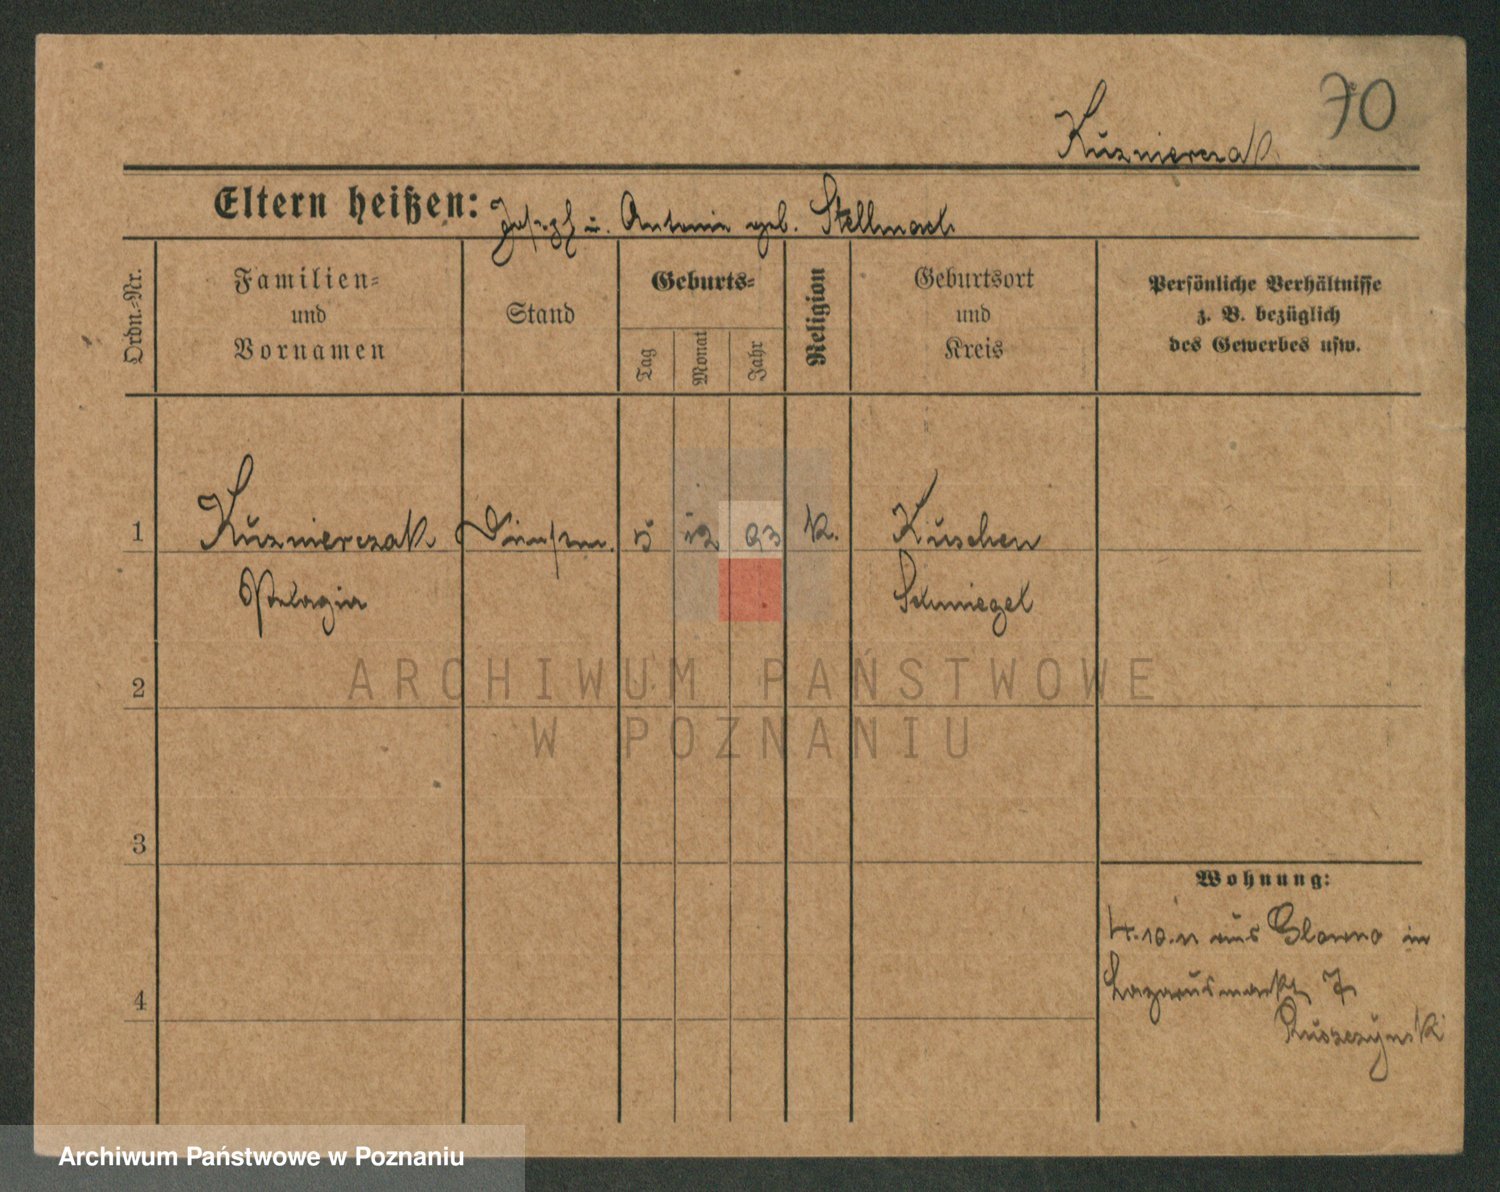 70
Kuznierczak
Eltern heißen: Joseph u. Antonie geb. Stellmach
Ordn.-Nr.
Familien-
und
Vornamen
Stand
Geburts-
Tag
Monat
Jahr
Religion
Geburtsort
und
Kreis
Persönliche Verhältnisse
z. B. bezüglich
des Gewerbes usw.
1 Kuznierczak 5 12 93 k. Kuschen
Pelagia Schmiegel
2
3
4
Wohnung:
4.10.11 aus Glowno in
Lazarusmarkt 7
Ruszczynski
ARCHIWUM PAŃSTWOWE
W POZNANIU
Archiwum Państwowe w Poznaniu